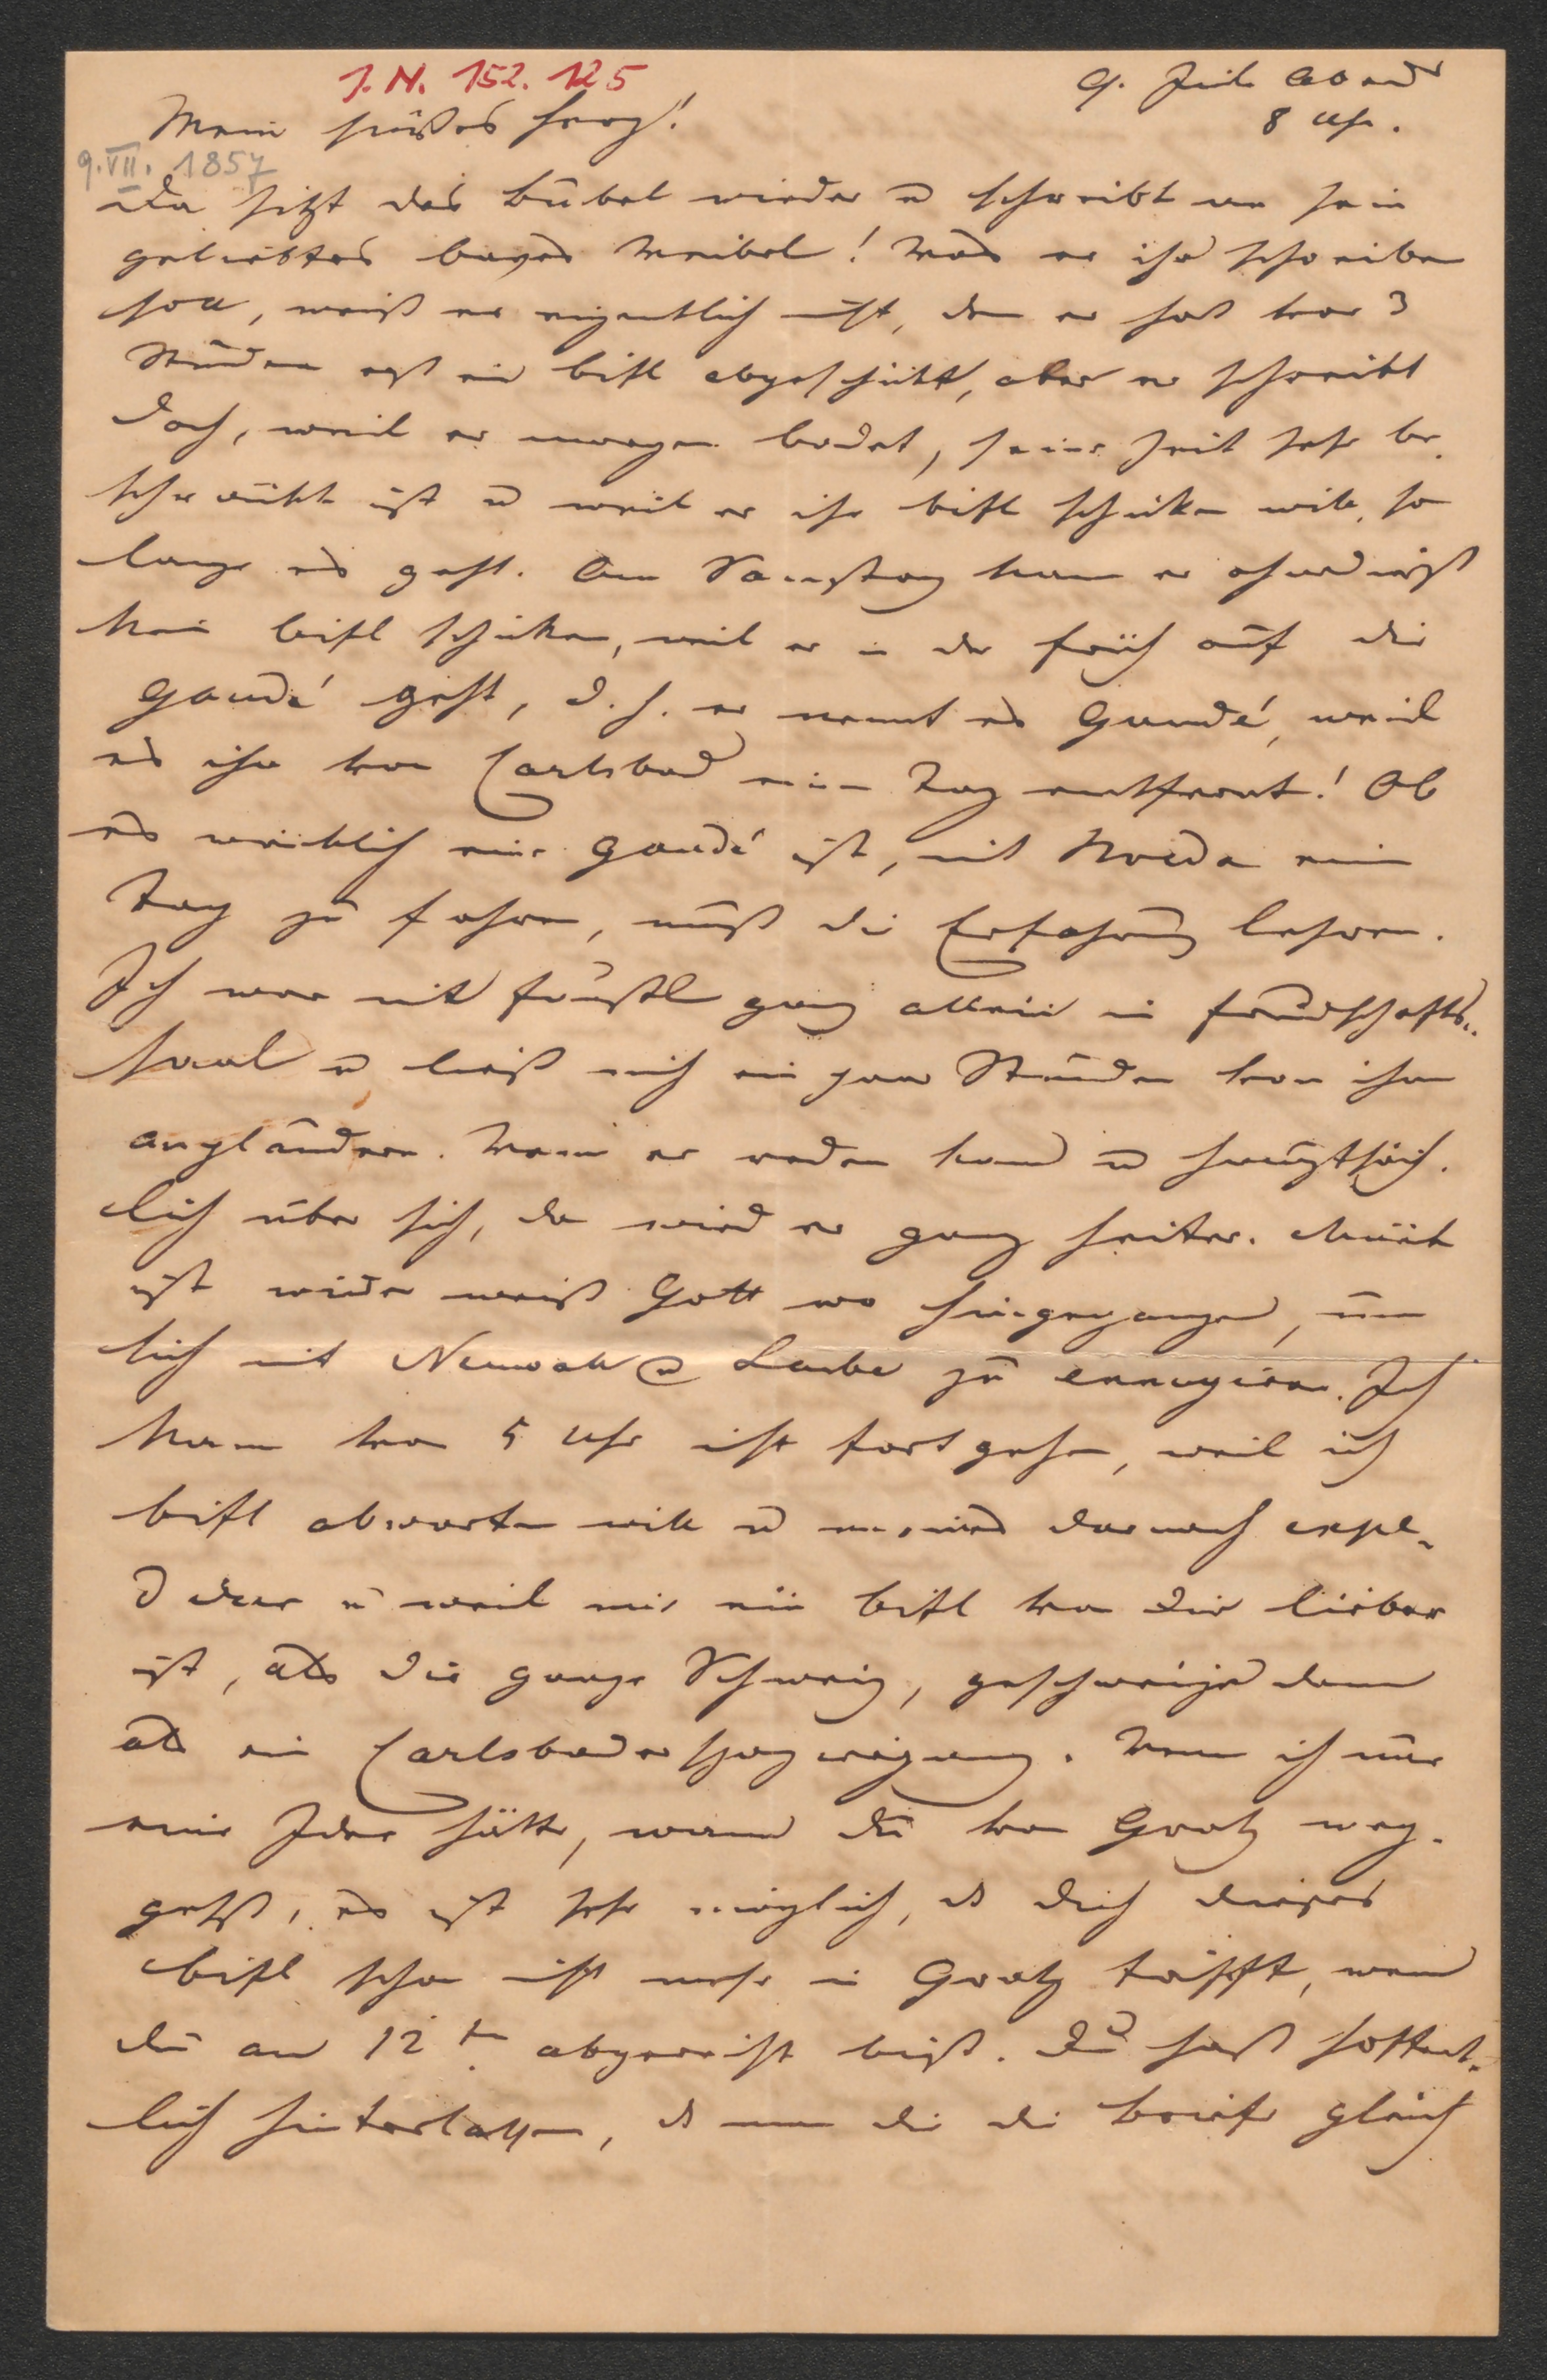 J. N. 152. 125
9. Juli Abends
8 Uhr.
Mein süßes Herz!
9. VII. 1857
Da sitzt das Bübel wieder u schreibt an sein
geliebtes Weibel! Was er ihr schreiben
soll, weiß er eigentlich nicht, denn er hat vor 3
Stunden erst ein bißl abgeschickt, aber er schreibt
doch, weil er morgen badet, seine Zeit sehr be-
schränkt ist u weil er ihr bißl schicken will, so
lange es geht. Am Samstag kann er ohnedieß
kein bißl schicken, weil er in der früh auf die
Gaudé geht, d. h. er nennt es Gaudé, weil
es ihn von Carlsbad einen Tag entfernt! Ob
es wirklich eine Gaudé ist, mit einen
Tag zu fahren, muß die Erfahrung lehren.
Ich war mit ganz allein im Freundschafts-
saal u ließ mich ein paar Stunden von ihm
anplaudern. Wenn er reden kann u hauptsäch-
lich über sich, da wird er ganz heiter.
ist wieder weiß Gott wo hingegangen, um
sich mit Neuwall u Laube zu ennuyiren. Ich
kann vor 5 Uhr nicht fortgehen, weil ich
bißl abwarten will u meines darnach expe-
diren u weil mir ein bißl von Dir lieber
ist, als die ganze Schweiz, geschweige denn
als ein Carlsbader Spaziergang. Wenn ich nur
eine Idee hätte, wann du von Gratz weg-
gehst, es ist sehr möglich, daß dich dieses
bißl schon nicht mehr in Gratz trifft, wenn
du am 12t. abgereist bist. Du hast hoffent-
lich hinterlassen, daß man dir die Briefe gleich